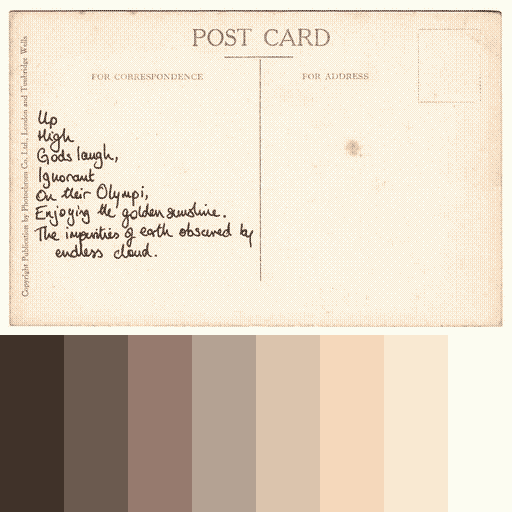 POST CARD
FOR CORRESPONDENCE
FOR ADDRESS
Copyright Publication by Photochrom Co. Ltd., London and Tunbridge Wells
Up
High
Gods laugh,
Ignorant
On their Olympi,
Enjoying the golden sunshine.
The impurities of earth obscured by
endless cloud.